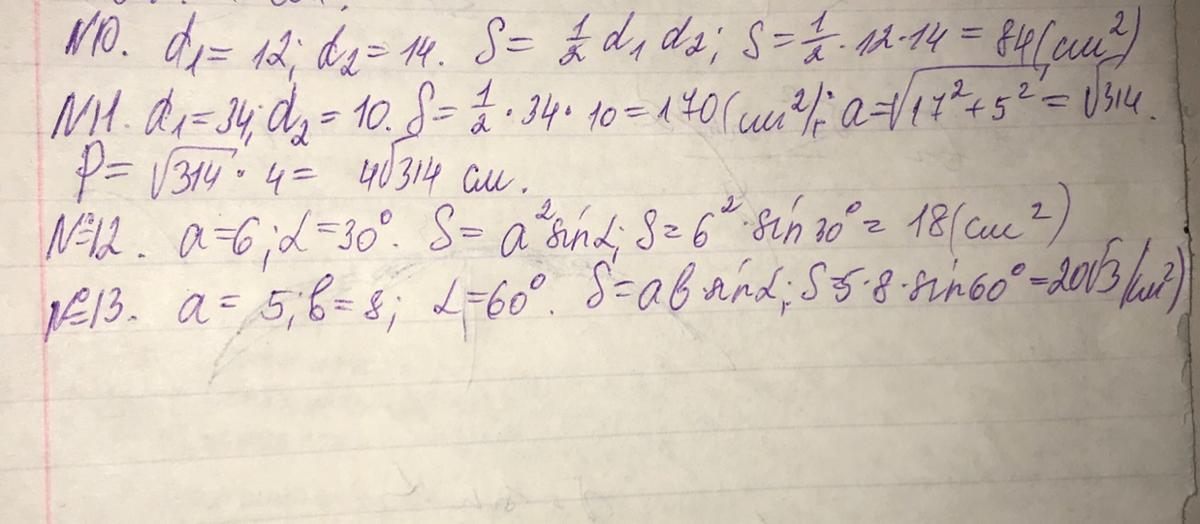 N10. d₁ = 12; d₂ = 14. S = 1/2 d₁ d₂; S = 1/2 · 12 · 14 = 84 (см²)
N11. d₁ = 34; d₂ = 10. S = 1/2 · 34 · 10 = 170 (см²); a = √(17² + 5²) = √314.
P = √314 · 4 = 4√314 см.
№12. a = 6; α = 30°. S = a² sin α; S = 6² · sin 30° = 18 (см²)
№13. a = 5; в = 8; α = 60°. S = aв · sin α; S = 5 · 8 · sin 60° = 20√3 (см²)